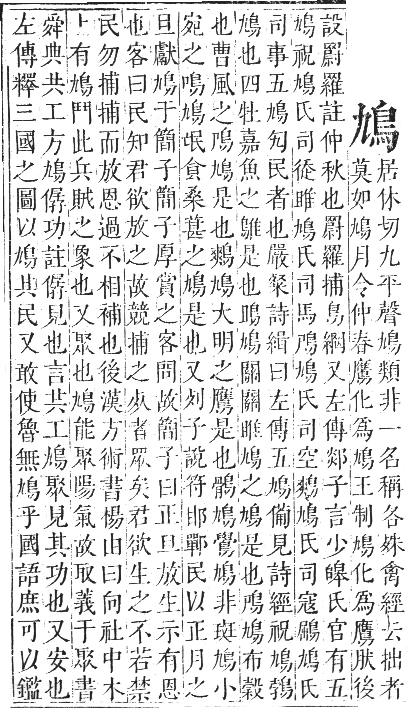 鳩
居休切九平聲鳩類非一名稱各殊禽經云拙者
莫如鳩月令仲春鷹化為鳩王制鳩化為鷹肰後
設罻羅註仲秋也罻羅捕鳥網又左傳郯子言少皞氏官有五
鳩祝鳩氏司徒雎鳩氏司馬鳲鳩氏司空鷞鳩氏司寇鶻鳩氏
司事五鳩勼民者也嚴粲詩緝曰左傳五鳩備見詩經祝鳩鵓
鳩也四牡嘉魚之鵻是也鴡鳩關關雎鳩之鳩是也鳲鳩布穀
也曹風之鳲鳩是也鷞鳩大明之鷹是也鶻鳩鷽鳩非斑鳩小
宛之鳴鳩氓食桑葚之鳩是也又列子說符邯鄲民以正月之
旦獻鳩于簡子簡子厚賞之客問故簡子曰正旦放生示有恩
也客曰民知君欲放之故競捕之死者眾矣君欲生之不若禁
民勿捕捕而放恩過不相補也後漢方術書楊由曰向社中木
上有鳩鬥此兵賊之象也又聚也鳩能聚陽氣故取義于聚書
舜典共工方鳩僝功註僝見也言共工鳩聚見其功也又安也
左傳釋三國之圖以鳩其民又敢使魯無鳩乎國語庶可以鑑